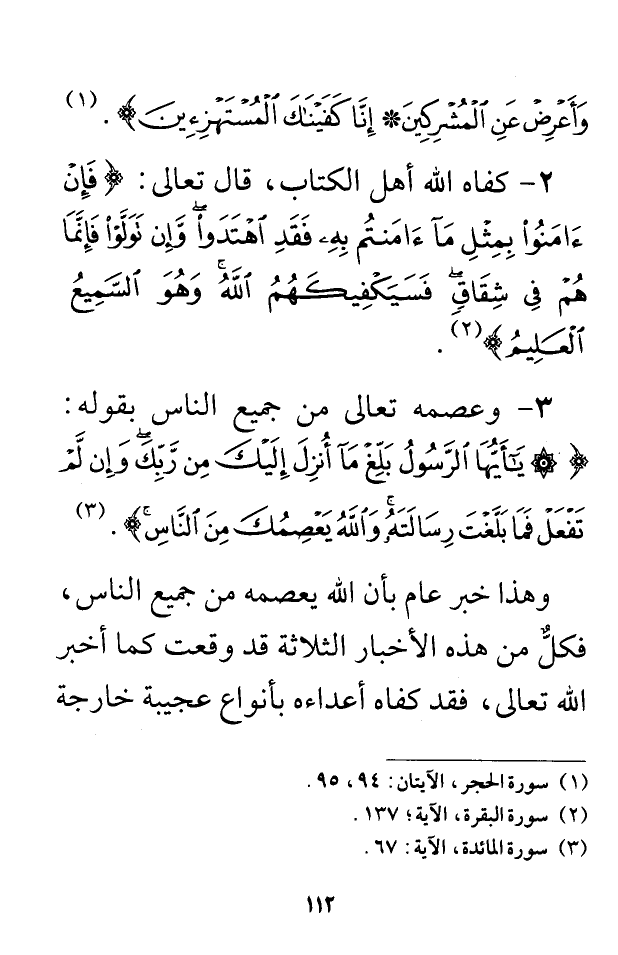 وَأَعْرِضْ عَنِ ٱلْمُشْرِكِينَ * إِنَّا كَفَيْنَٰكَ ٱلْمُسْتَهْزِءِينَ ﴾ . (١)
٢- كفاه الله أهل الكتاب، قال تعالى: ﴿ فَإِنْ
ءَامَنُوا۟ بِمِثْلِ مَآ ءَامَنتُم بِهِۦ فَقَدِ ٱهْتَدَوا۟ ۖ وَّإِن تَوَلَّوْا۟ فَإِنَّمَا
هُمْ فِى شِقَاقٍ ۖ فَسَيَكْفِيكَهُمُ ٱللَّهُ ۚ وَهُوَ ٱلسَّمِيعُ
ٱلْعَلِيمُ ﴾ (٢) .
٣- وعصمه تعالى من جميع الناس بقوله:
﴿ ۞ يَٰٓأَيُّهَا ٱلرَّسُولُ بَلِّغْ مَآ أُنزِلَ إِلَيْكَ مِن رَّبِّكَ ۖ وَإِن لَّمْ
تَفْعَلْ فَمَا بَلَّغْتَ رِسَالَتَهُۥ ۚ وَٱللَّهُ يَعْصِمُكَ مِنَ ٱلنَّاسِ ۚ ﴾ . (٣)
وهذا خبر عام بأن الله يعصمه من جميع الناس،
فكلٌّ من هذه الأخبار الثلاثة قد وقعت كما أخبر
الله تعالى، فقد كفاه أعداءه بأنواع عجيبة خارجة
(١) سورة الحجر، الآيتان: ٩٤، ٩٥ .
(٢) سورة البقرة، الآية؛ ١٣٧ .
(٣) سورة المائدة، الآية: ٦٧ .
١١٢